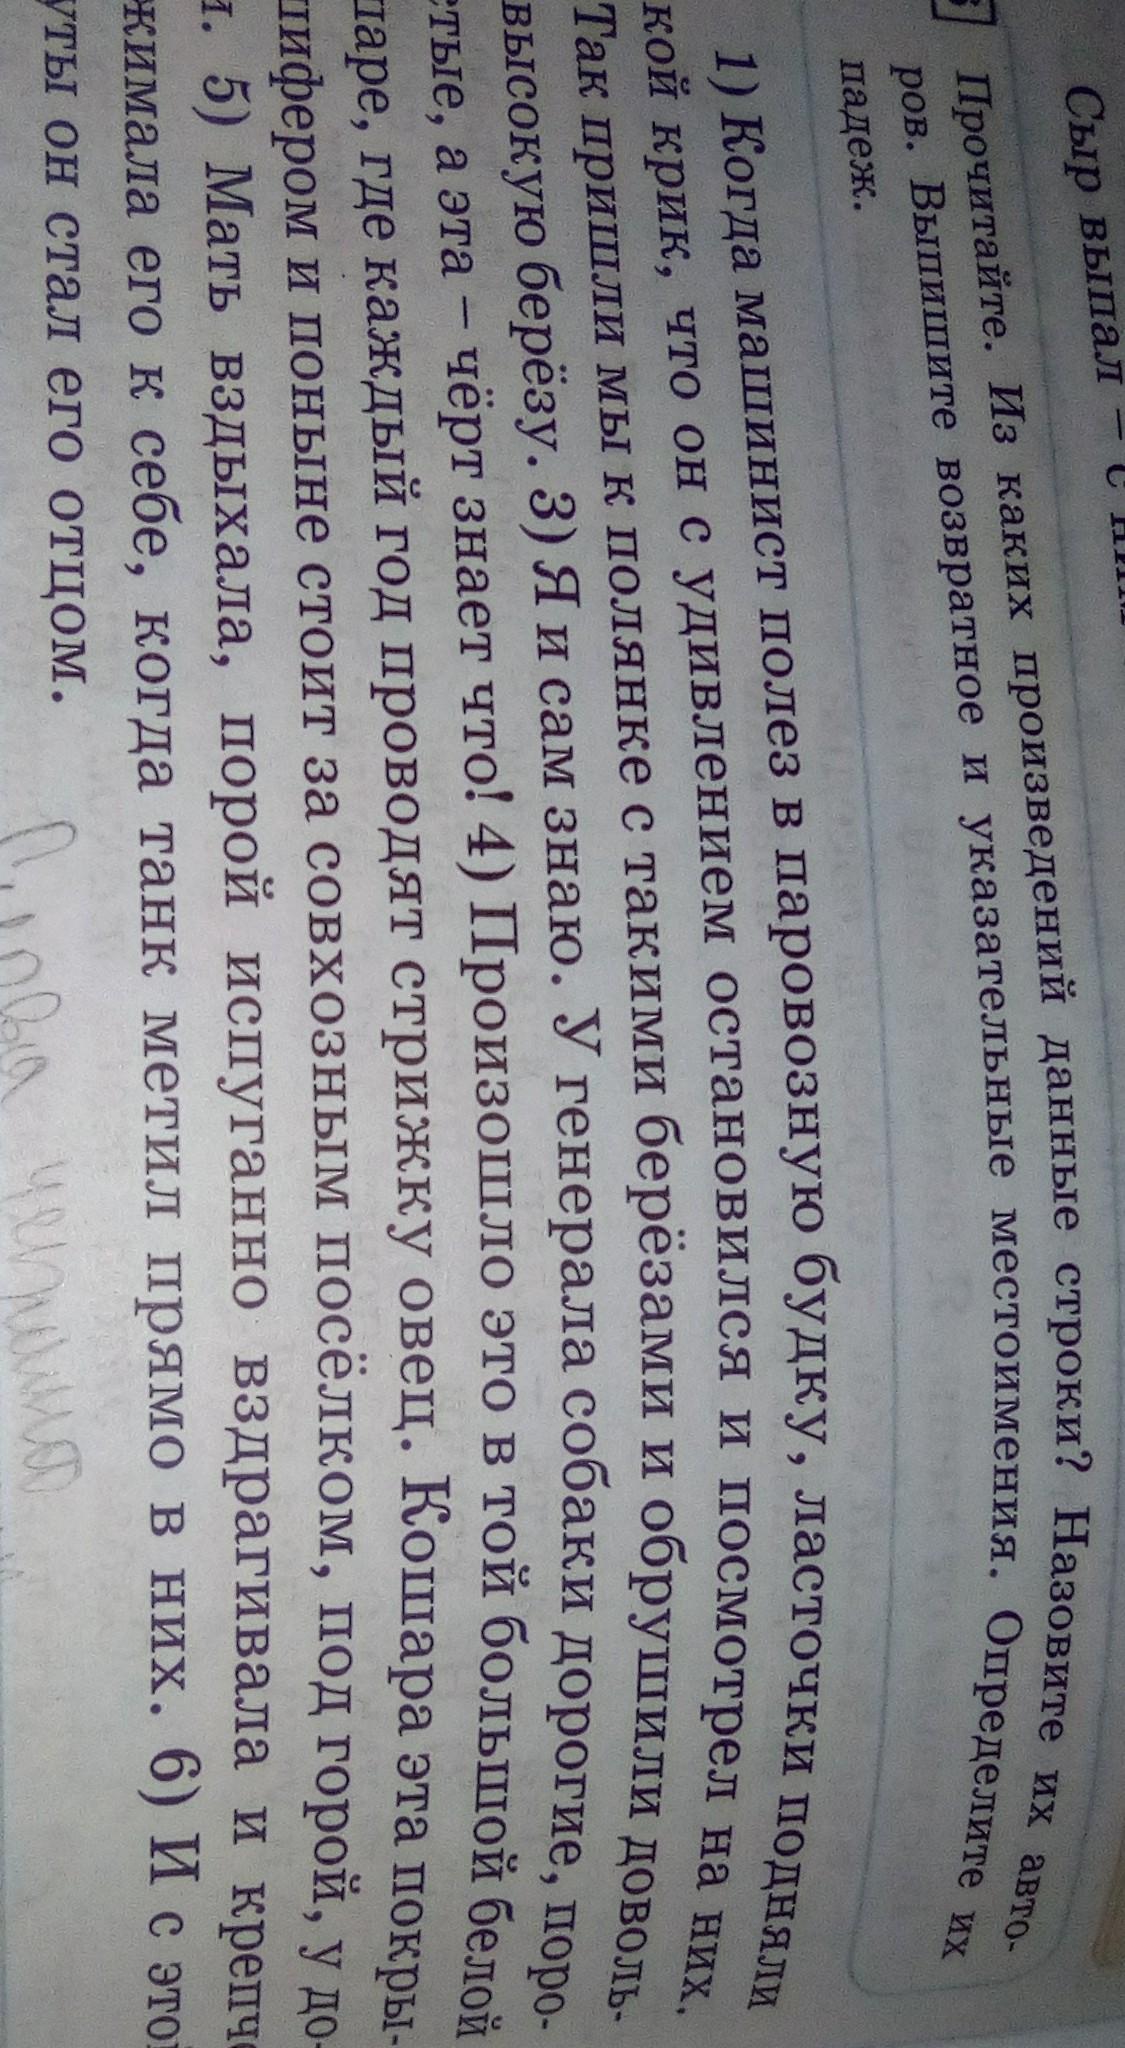 Сыр выпал – с ним
Прочитайте. Из каких произведений данные строки? Назовите их авто-
ров. Выпишите возвратное и указательные местоимения. Определите их
падеж.
1) Когда машинист полез в паровозную будку, ласточки подняли
кой крик, что он с удивлением остановился и посмотрел на них.
Так пришли мы к полянке с такими берёзами и обрушили доволь-
высокую берёзу. 3) Я и сам знаю. У генерала собаки дорогие, поро-
стые, а эта – чёрт знает что! 4) Произошло это в той большой белой
шаре, где каждый год проводят стрижку овец. Кошара эта покры-
шифером и поныне стоит за совхозным посёлком, под горой, у до-
и. 5) Мать вздыхала, порой испуганно вздрагивала и крепче
жимала его к себе, когда танк метил прямо в них. 6) И с этой
уты он стал его отцом.